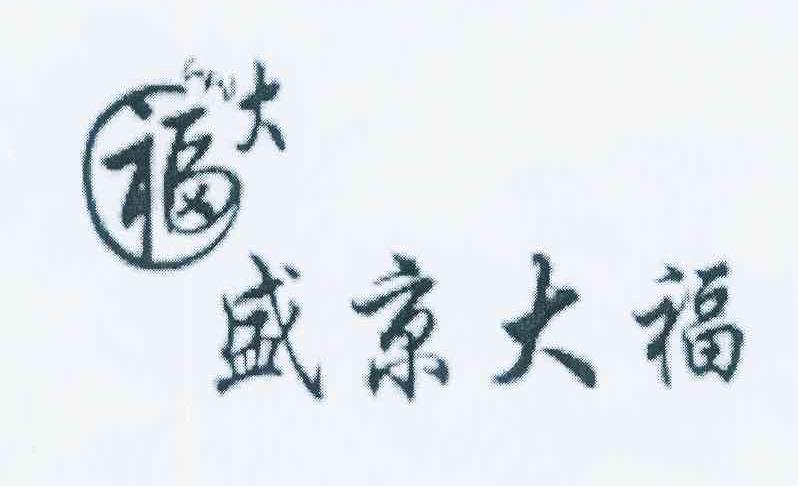 大福
盛京大福